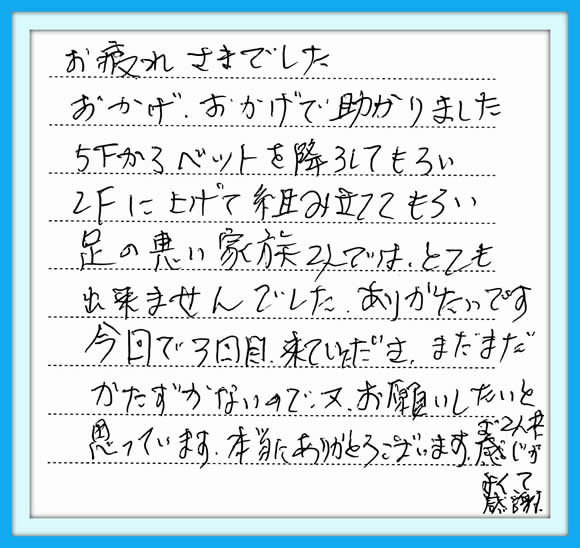 お疲れさまでした
おかげ、おかげで助かりました
5Fからベットを降ろしてもらい
2Fに上げて組み立ててもらい
足の悪い家族2人では、とても
出来ませんでした、ありがたいです
今回で3回目、来ていただき、まだまだ
かたずかないので、又、お願いしたいと
思っています、本当にありがとうございます、
お2人共
感じが
よくて
感謝